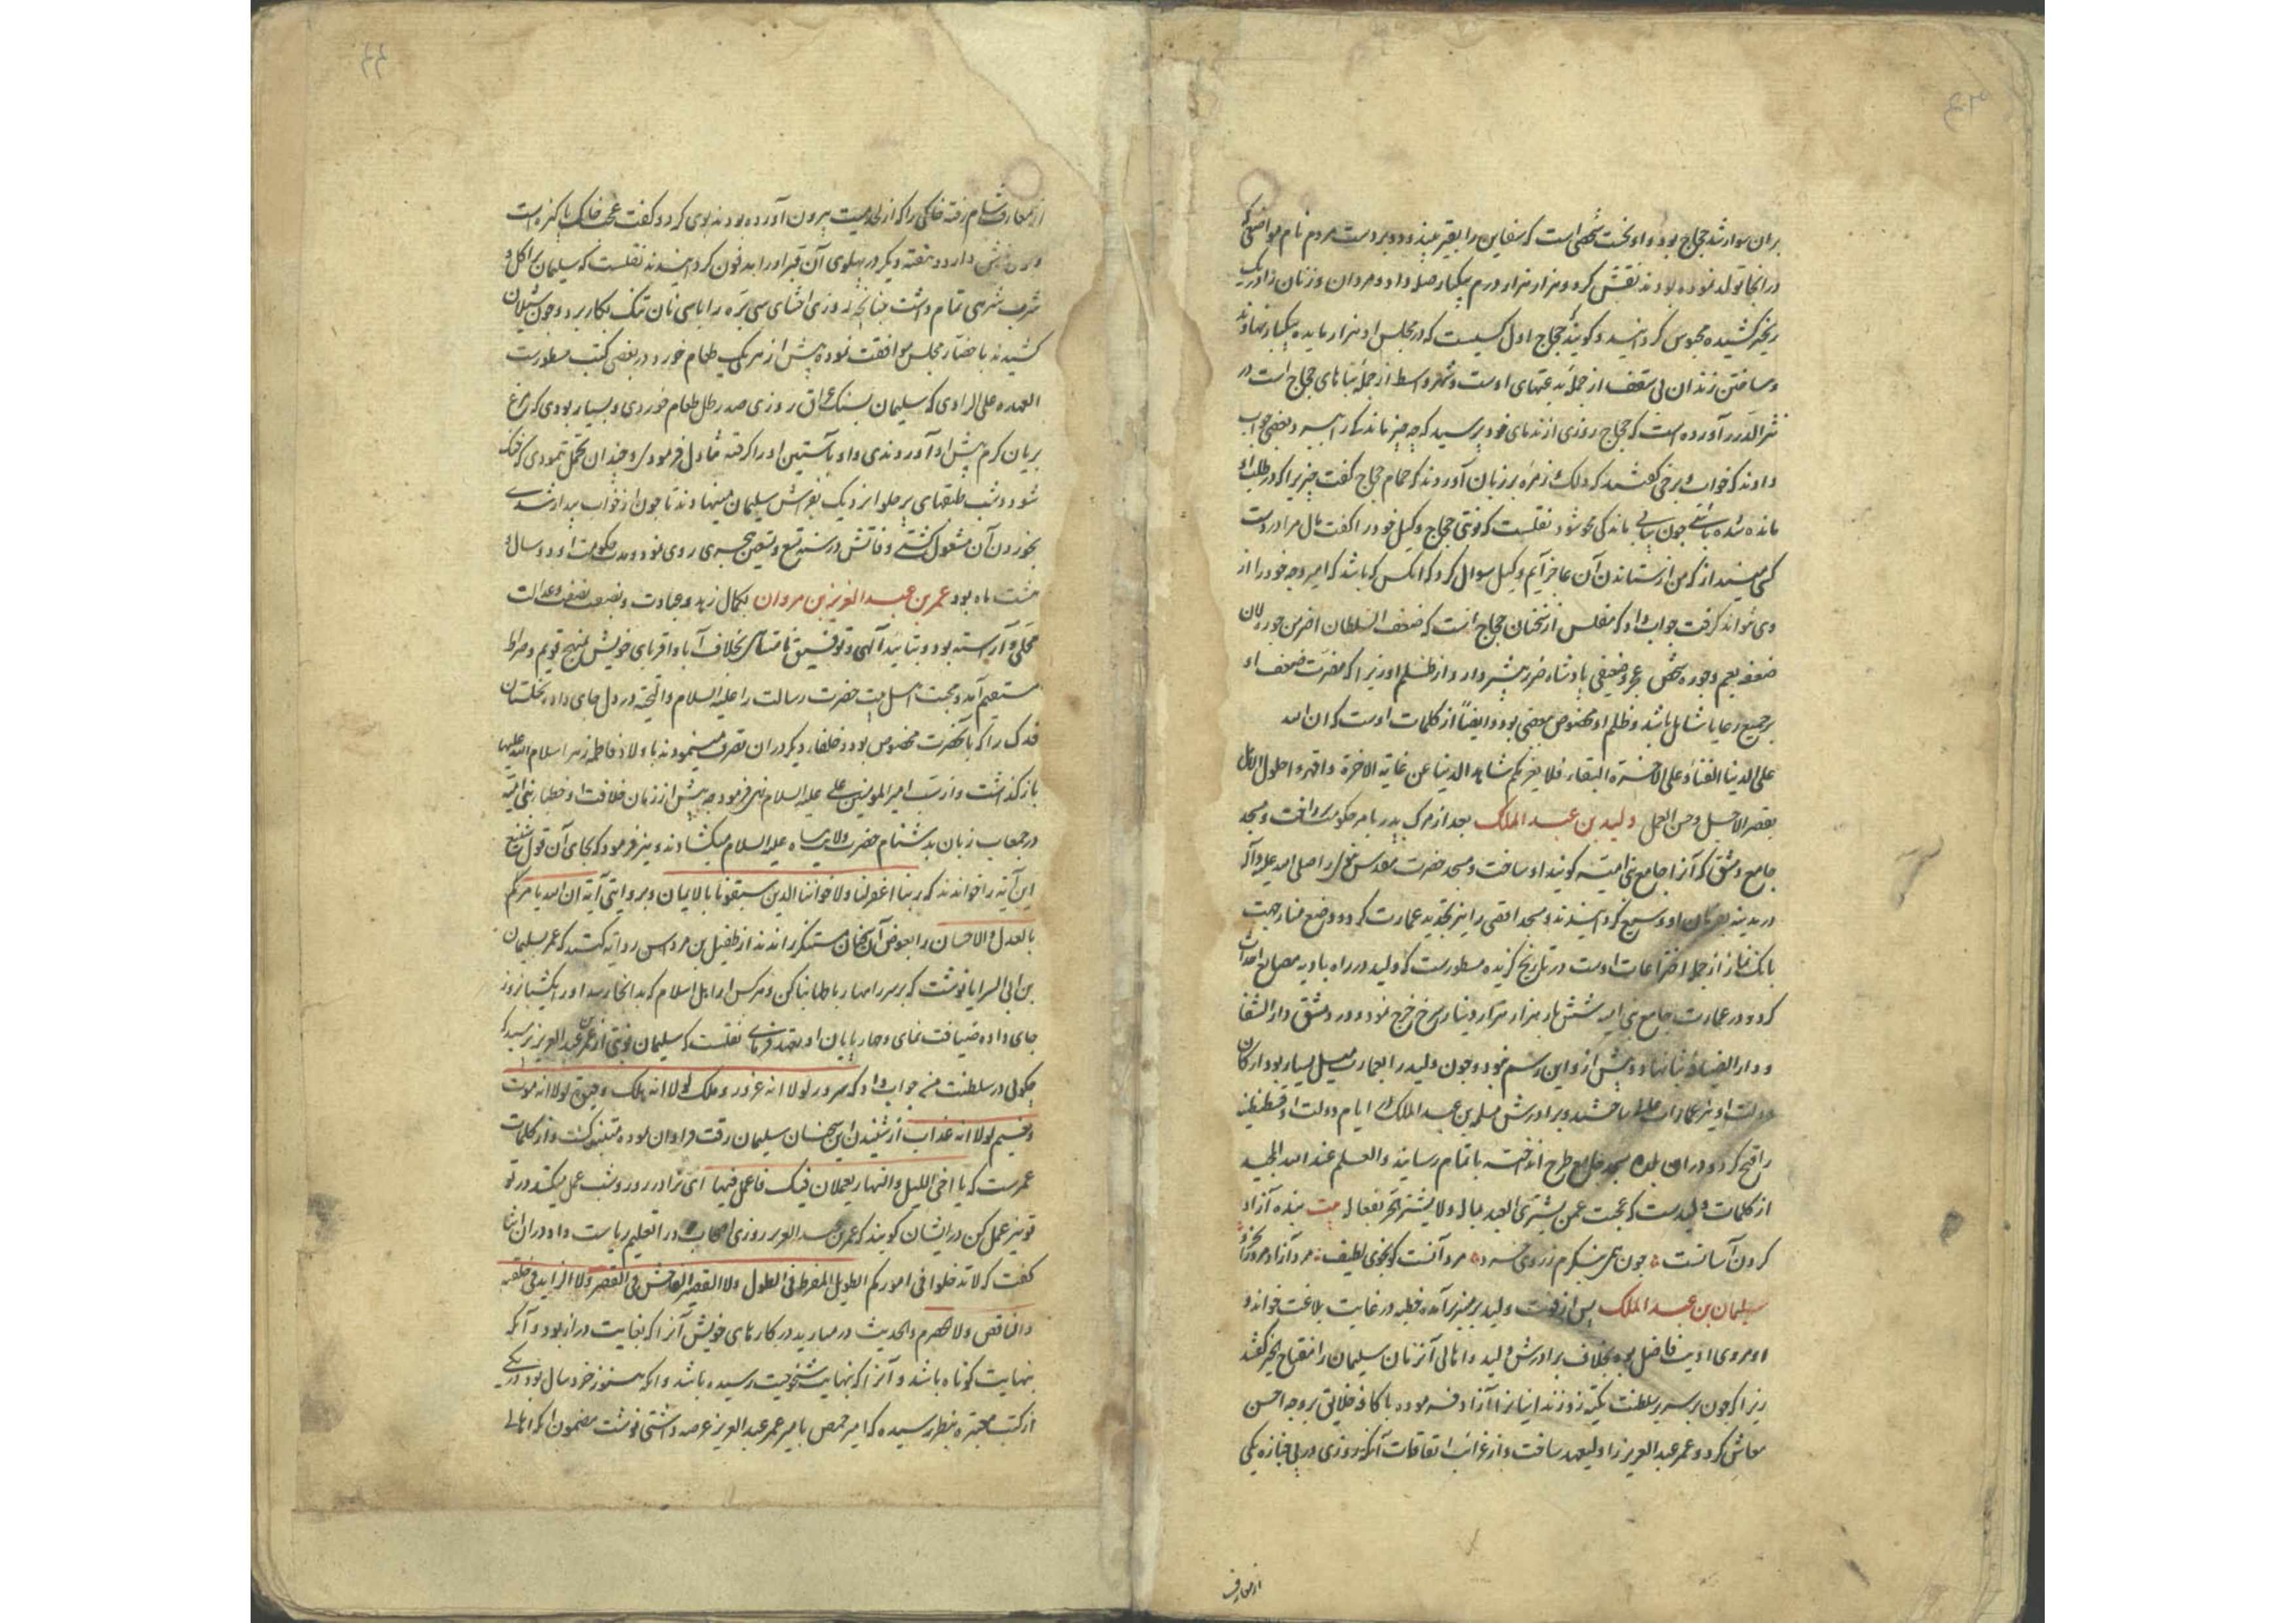 بران سوار شد حجاج بود و او نخست شخصی است که سفاین را بقیر و دو بر دست مردم نام مواضعی که
در انجا تولد نموده بودند نقش کرد و هزار هزار درم بیکبار صله داد و مردان و زنان را در یک
زنجیر کشیده محبوس کردانید و کویند حجاج اول کسیست که در مجلس او هزار مایده بیکبار نهادند
و ساختن زندان بی سقف از جمله بدعتهای اوست و شهر واسط از جمله بناهای حجاج است در
نثر الدرر آورده است که حجاج روزی از ندمای خود پرسید که چه چیز ماندکی را بعضی جواب
دادند که خواب و برخی کفتند که دلک و زمره بر زبان آوردند که حمام حجاج کفت چیزیرا که در طلب او
مانده شده باشی چون بیابی ماندکی محو شود نقلست که نوبتی حجاج وکیل خود را کفت مال مرا در دست
کسی مینداز که من از ستاندن آن عاجز آیم وکیل سوال کرد که آنکس که باشد که امیر وجه خود را از
وی نتواند کرفت جواب داد که مفلس از سخنان حجاج است که ضعف السلطان اضر من جوره لان
ضعفه یعم و جوره یخص عجز و ضعیفی پادشاه ضرر بیشتر دارد از ظلم او زیرا که مضرت ضعف او
بر جمیع رعایا شامل باشد و ظلم او مخصوص بعضی بود و ایضا از کلمات اوست که ان الله
علی الدنیا الفناء و علی الاخرة البقاء فلا یغرنکم شاهد الدنیا عن غایة الاخرة و اقهروا طول الامل
بقصر الاجل و حسن العمل ولید بن عبد الملک بعد از مرک پدر بامر حکومت پرداخت و مسجد
جامع دمشق که آنرا جامع بنی امیه کویند او ساخت و مسجد حضرت مقدس نبوی را صلی الله علیه و آله
در مدینه بفرمان او وسیع کردانیدند و مسجد اقصی را نیز تجدید عمارت کرد و وضع منار جهت
بانک نماز از جمله اختراعات اوست در تاریخ کزیده مسطورست که ولید در راه بادیه مصانع احداث
کرد و در عمارت جامع بنی امیه شش بار هزار هزار دینار سرخ خرج نمود و در دمشق دار الشفا
و دار الضیافه بنا نهاد و پیش از و این رسم نبود و چون ولید را بعمارت میل بسیار بود ارکان
دولت او نیز عمارات عالیه ساختند و برادرش مسلمه بن عبد الملک در ایام دولت او قسطنطنیه
را فتح کرد و در آن بلده مسجد جامع طرح انداخته باتمام رسانید و العلم عند الله المجید
از کلمات ولیدست که عجبت عمن یشتری العبد بماله و لا یشتری الحر بفعاله بیت بنده آزاد
کردن آسانست چون همی بنکرم ز روی خرد مرد آنست کو بخوی لطیف مرد آزاد مرد را بخرد
سلیمان بن عبد الملک پس از فوت ولید بر منبر برآمده خطبه در غایت بلاغت خواند و
او مردی ادیب فاضل بود بخلاف برادرش ولید و اهالی آنزمان سلیمان را مفتاح الخیر کفتند
زیرا که چون بر سریر سلطنت تکیه زد زندانیانرا آزاد نموده با کافه خلایق بر وجه احسن
معاش کرد و عمر عبد العزیز را ولیعهد ساخت و از غرائب اتفاقات آنکه روزی در پی جنازه یکی
از معارف
از معارف شام رفته خاکی را که از لحد میت بیرون آورده بودند بوی کرد و کفت عجب خاک پاکیزه است
دارد و هفته دیکر در پهلوی آن قبر او را مدفون کردانیدند نقلست که سلیمان بر اکل و
شرب شرهی تمام داشت چنانچه روزی احشای سی بره را با سی نان تنک بکار برد و چون شیلان
کشیدند با حضار مجلس موافقت نموده بیش از هر یک طعام خورد و در بعضی کتب مسطورست
العهده علی الراوی که سلیمان بسنک عراق روزی صد رطل طعام خوردی و بسیار بودی که مرغ
بریان کرم پیش او آوردندی و او بآستین او را کرفته تناول فرمودی و چندان تحمل ننمودی که خنک
شود و شب طبقهای پر حلوا نزدیک بفراش سلیمان مینهادند تا چون از خواب بیدار شدی
بخوردن آن مشغول کشتی وفاتش در سنه تسع و تسعین هجری روی نمود و مدت حکومت او دو سال و
هشت ماه بود عمر بن عبد العزیز بن مروان بکمال زهد و عبادت و نصفت و عدالت
محلی و آراسته بود و بتایید آلهی و توفیق نامتناهی بخلاف آبا و اقربای خویش بمنهج قویم و صراط
مستقیم آمد و محبت اهل بیت حضرت رسالت را علیه السلام و التحیة در دل جای داد و نخلستان
فدک را که بآنحضرت مخصوص بود و خلفاء دیکر در آن تصرف مینمودند باولاد فاطمه زهرا سلام الله علیها
باز کذاشت و از سب امیر المومنین علی علیه السلام نهی فرمود چه پیش از زمان خلافت او خطبای بنی امیه
در جمعات زبان بدشنام حضرت ولایت پناه علیه السلام میکشادند و نیز فرمود که بجای آن قول شنیع
این آیه را خواندند که ربنا اغفرلنا و لاخواننا الذین سبقونا بالایمان و بروایتی آیه ان الله یامرکم
بالعدل و الاحسان را بعوض آن سخنان مستنکر راندند از طفیل بن مرداس روایه کنند که عمر بسلیمان
بن ابی السرایا نوشت که بر سر راهها رباطها بنا کن و هر کس از اهل اسلام که بدانجا رسد او را یکشبانروز
جای داده ضیافت نمای و چهارپایان او تعهد فرمای نقلست که سلیمان نوبتی از عمر بن عبد العزیز پرسید که
چکونی در سلطنت من جواب داد که سرور لولا انه غرور و ملک لولا انه هلک و حیوة لولا انه موت
و نعیم لولا انه عذاب از شنیدن این سخنان سلیمان رقت فراوان نموده متنبه کشت و از کلمات
عمرست که یا اخی اللیل و النهار یعملان فیک فاعمل فیهما ای برادر روز و شب عمل میکنند در تو
تو نیز عمل کن در ایشان کویند که عمر بن عبد العزیز روزی اصحاب را تعلیم ریاست داد و در آن اثنا
کفت که لا تدخلوا فی امورکم الطویل المفرط فی الطول و لا القصیر الفاحش فی القصر و لا الزاید فی خلقه
و الناقص و لا الهرم و الحدیث در میارید در کارهای خویش آنرا که بغایت دراز بود و آنکه
بنهایت کوتاه باشد و آنرا که بنهایت شیخوخیت رسیده باشد و آنکه هنوز خرد سال بود در یکی
از کتب معتبره بنظر رسیده که امیر حمص بامیر عمر عبد العزیز عرضه داشتی نوشت مضمون آنکه اهالی